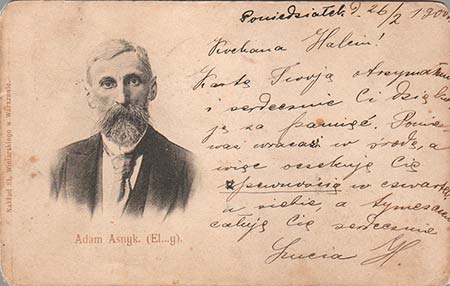 Poniedziałek d. 26/2 1900
Kochana Halciu!
Kartę Twoją otrzymałam
i serdecznie Ci dzięku
ję za pamięć. Ponie-
waż wracasz w środę, a
więc oczekuję Cię
z pewnością w czwartek
u siebie, a tymczasem
całuję Cię serdecznie
Lucia H.
Adam Asnyk. (El...y).
Nakład St. Winiarskiego w Warszawie.